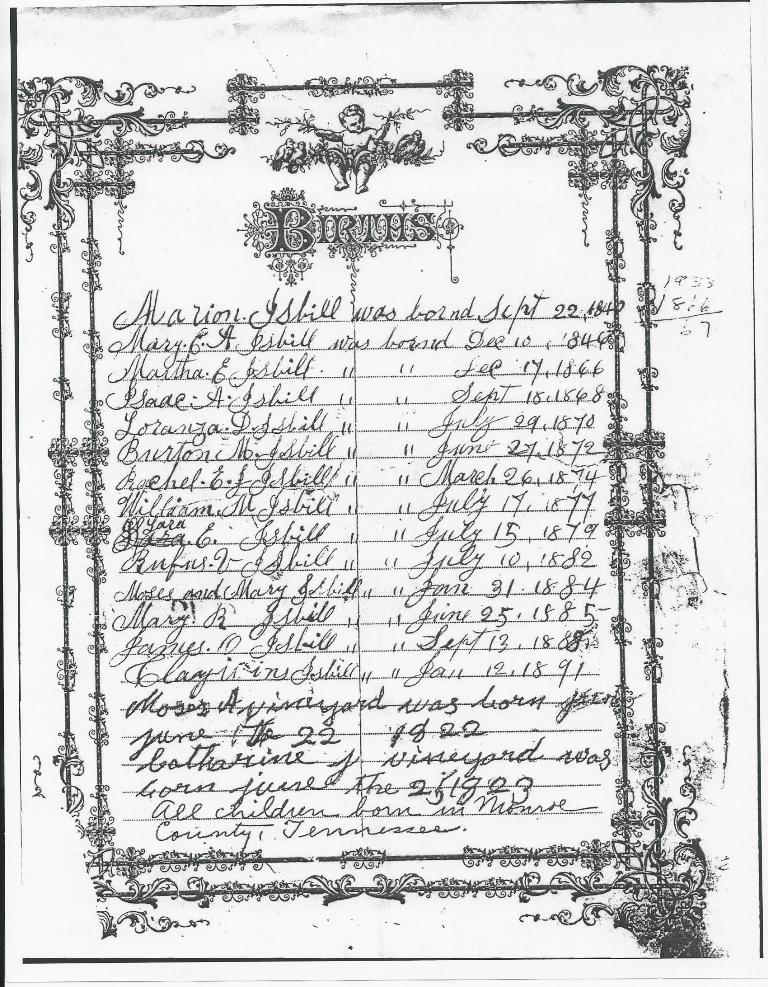 BIRTHS
Marion. Isbill was bornd Sept 22, 184
1933
1866
67
Mary. E. A Isbill was bornd Dec 10, 1846
Martha. E Isbill. " " Dec 17, 1866
Isaac. A. Isbill " " Sept 18. 1868
Loranza. D. Isbill " " July 29, 1870
Burton M. Isbill " " June 27, 1872
Rachel. E. J Isbill " " March 26, 1874
William. M Isbill " " July 17, 1877
E. Isbill " " July 15, 1879
Rufus. V Isbill " " July 10, 1882
Moses and Mary Isbill " " Jan 31. 1884
Mary. R Isbill " " June 25. 1885
James. O Isbill " " Sept 13. 188
Isbill " " Jan 12. 1891
Moses A vineyard was born
june the 22 1922
Catharine J vineyard was
born june the 25, 1923
All children born in Monroe
County, Tennessee.